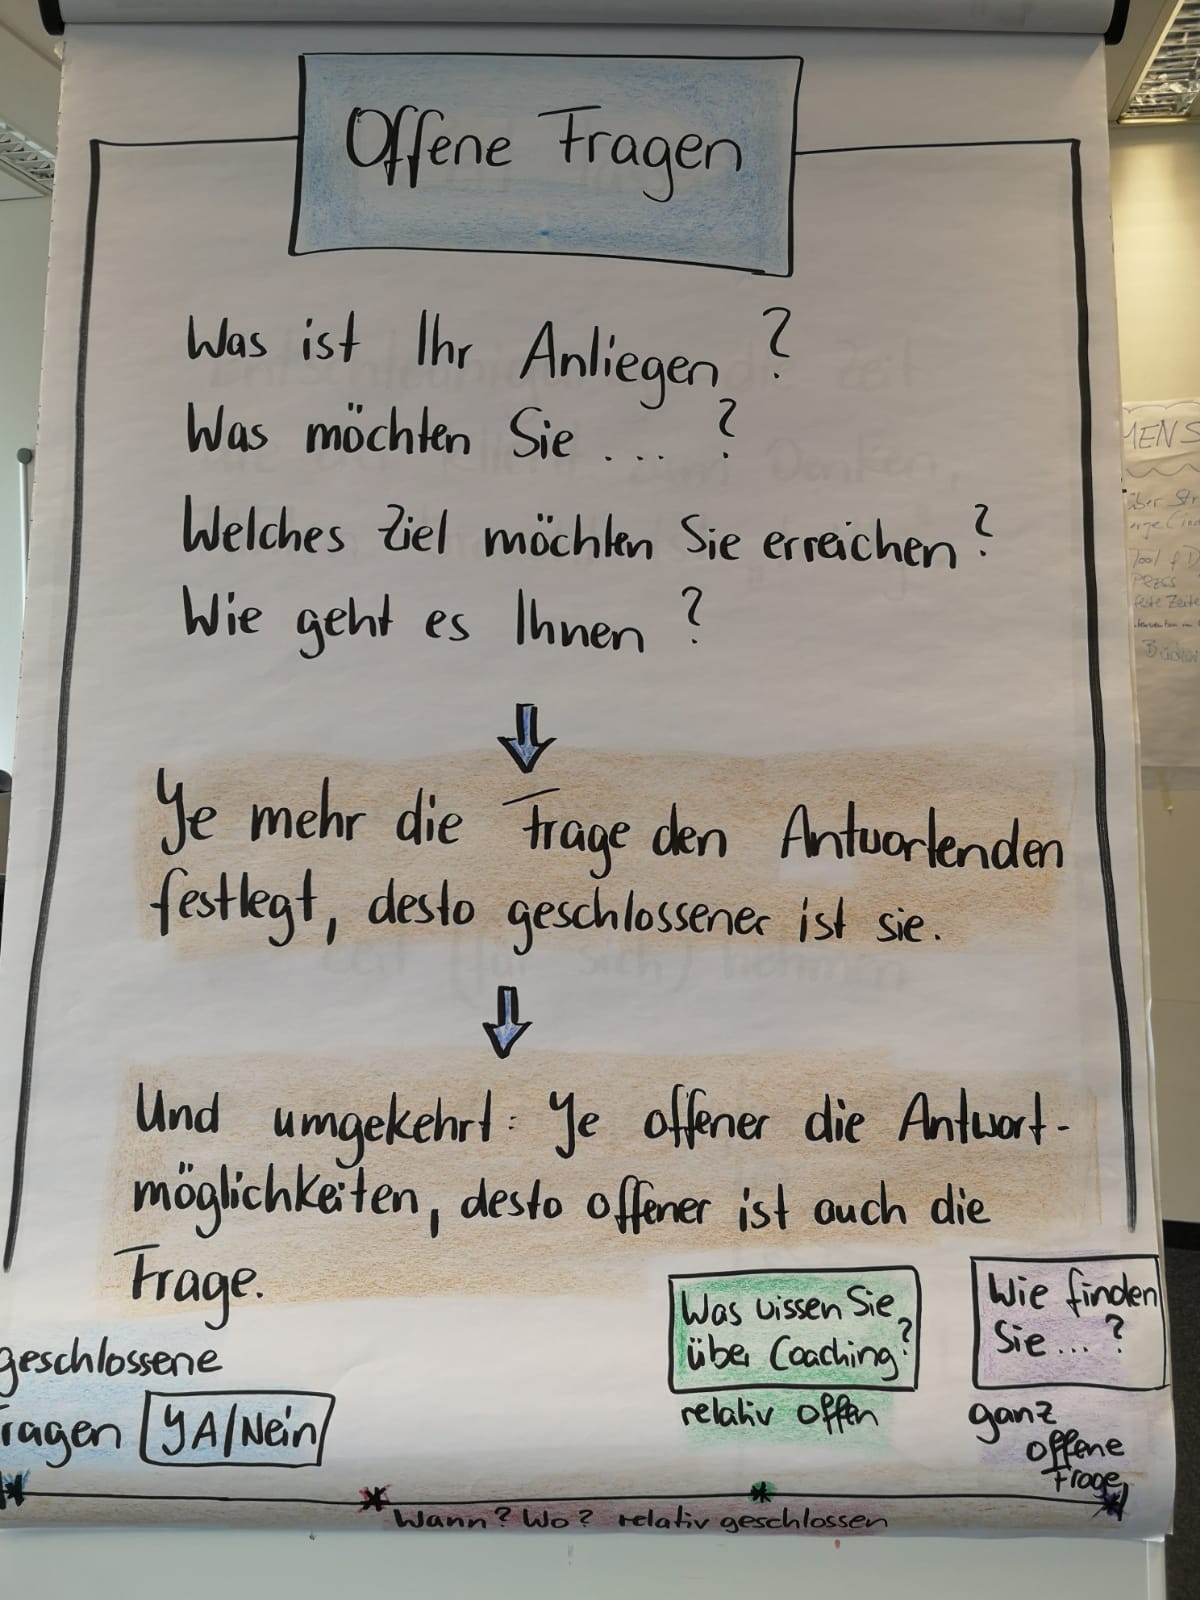 Offene Fragen
Was ist Ihr Anliegen?
Was möchten Sie ... ?
Welches Ziel möchten Sie erreichen?
Wie geht es Ihnen?
Je mehr die Frage den Antwortenden
festlegt, desto geschlossener ist sie.
Und umgekehrt: Je offener die Antwort-
möglichkeiten, desto offener ist auch die
Frage.
geschlossene
ragen JA/Nein
Was wissen Sie
über Coaching?
relativ offen
Wie finden
Sie ... ?
ganz
offene
Frage
Wann? Wo? relativ geschlossen
MENS
über Str
Tool
feste Zeite